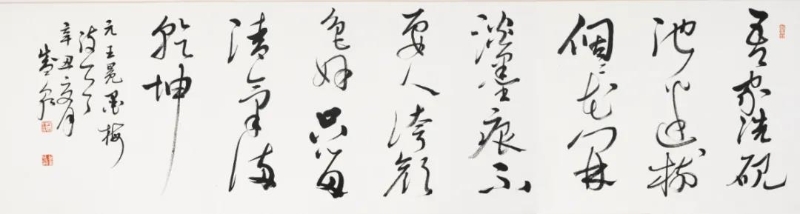 吾家洗硯
池邊樹
個々花開
淡墨痕不
要人誇顏
色好只留
清氣滿
乾坤
元王冕墨梅
詩一首
辛丑夏月